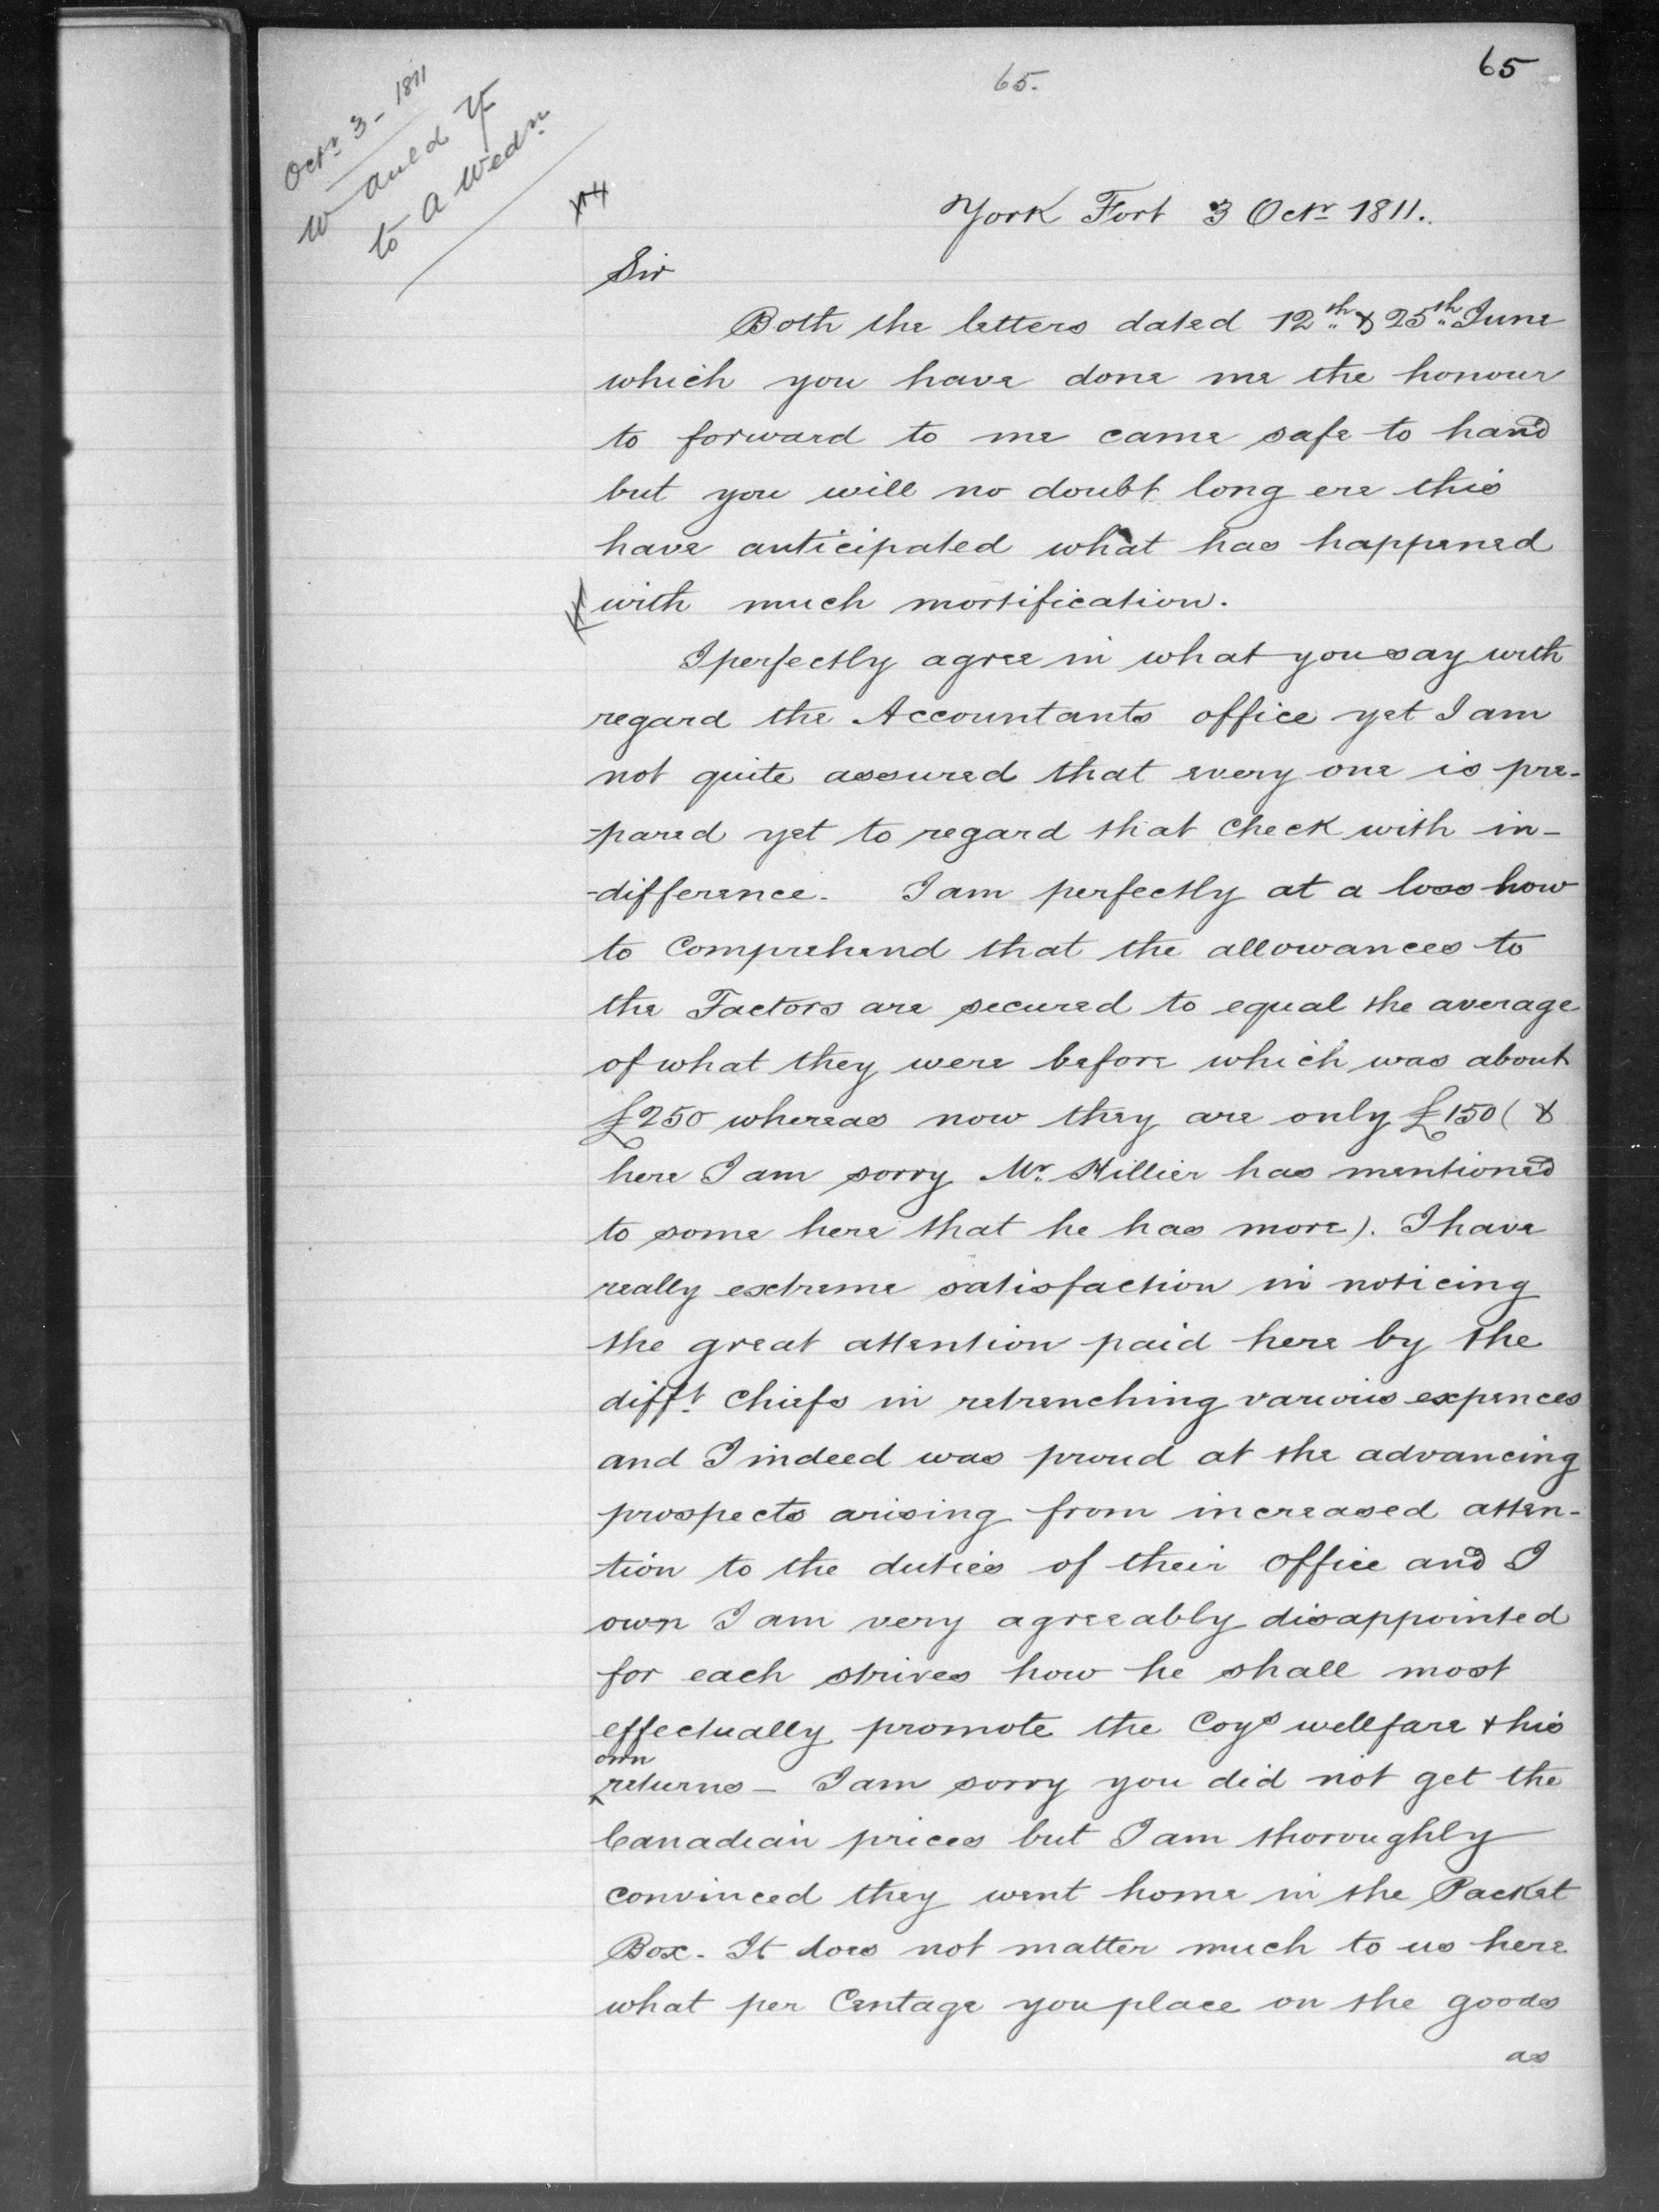 65.
65
Octr 3 - 1811
W Auld YF
to A Wedn
York Fort 3 Octr 1811.
Sir
Both the letters dated 12th & 25th June
which you have done me the honour
to forward to me came safe to hand
but you will no doubt long ere this
have anticipated what has happened
with much mortification.
I perfectly agree in what you say with
regard the Accountants office yet I am
not quite assured that every one is pre-
-pared yet to regard that check with in-
-difference. I am perfectly at a loss how
to Comprehend that the allowances to
the Factors are secured to equal the average
of what they were before which was about
£250 whereas now they are only £150 ( &
here I am sorry Mr. Hillier has mentioned
to some here that he has more). I have
really extreme satisfaction in noticing
the great attention paid here by the
difft. Chiefs in retrenching various expences
and I indeed was proud at the advancing
prospects arising from increased atten-
tion to the duties of their Office and I
own I am very agreeably disappointed
for each strives how he shall most
effectually promote the Coys wellfare & his
own
returns - I am sorry you did not get the
Canadian prices but I am thoroughly
convinced they went home in the Packet
Box. It does not matter much to us here
what per Centage you place on the goods
as